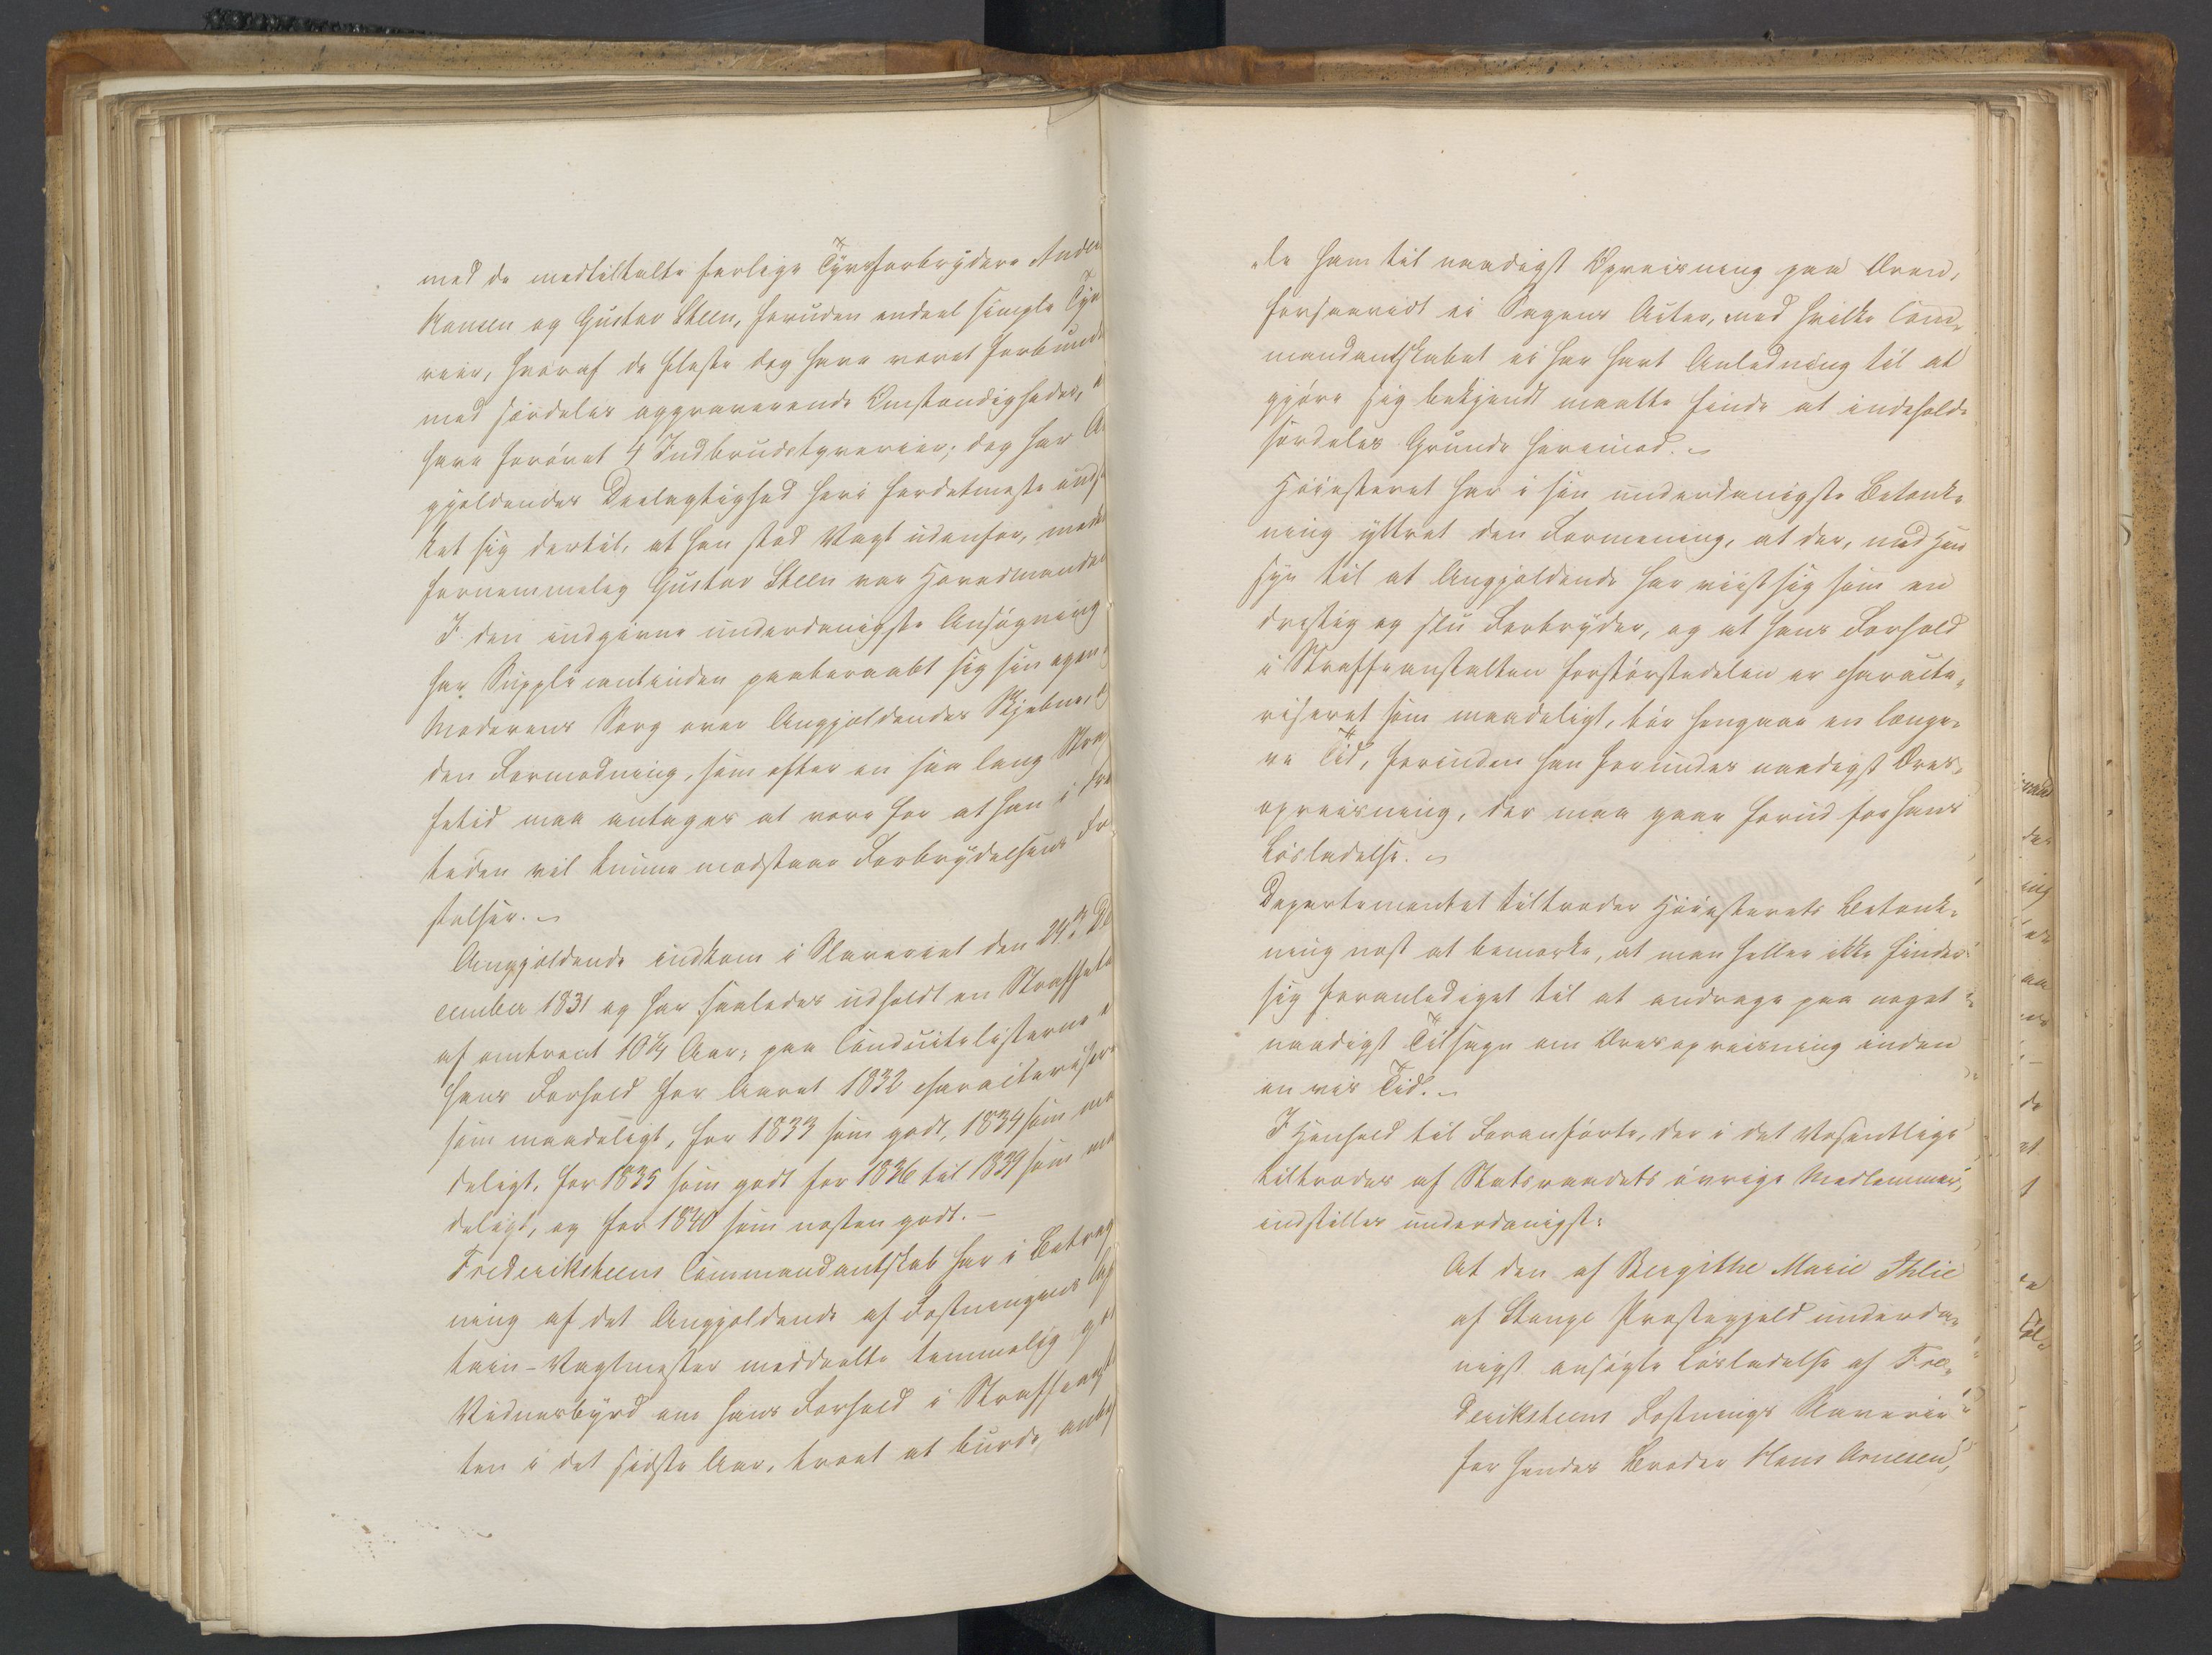 med de medtiltalte farlige Tyvsforbrydere Ande
Hansen og Gustav Steen, foruden endeel simple Tyv
rier, hvoraf de fleste dog have været forbunde
med særdeles aggraverende Omstændigheder,
have forøvet 4 Indbrudstyverier; dog har A
gjældendes Deelagtighed heri fordetmeste ind
ket sig dertil, at han stod Vagt udenfor, mede
fornemmelig Gustav Steen var Hovedmanden
I den indgivne underdanigste Ansøgning
har Supplicantinden paaberaabt sig sin egen
Moderens Sorg over Angjældendes Skjebne,
den Formodning, som efter en saa lang Stra
fetid maa antages at være for at han i Fre
tiden vil kunne modstaae Forbrydelsens Fri
stelser. -
Angjældende indkom i Slaveriet den 24de De
cember 1831 og har saaledes udholdt en Straffeti
af omtrent 10¼ Aar; paa Conduitelisterne
hans Forhold for Aaret 1832 characterisere
som maadeligt, for 1833 som godt, 1834 som ma
deligt, for 1835 som godt for 1836 til 1839 som ma
deligt, og for 1840 som næsten godt. -
Frederiksteens Commandantskab har i Betrag
ning af det Angjældende af Fæstningens Cap
tain-Vagtmester meddeelte temmelig god
Vidnesbyrd om hans Forhold i Straffeanst
ten i det sidste Aar, troet at burde anbe
"le ham til naadigst Opreisning paa Æren,
forsaavidt ei Sagens Acter, med hvilke Com-
mandantskabet ei har havt Anledning til at
gjøre sig bekjendt maatte finde at indeholde
særdeles Grunde herimod. -
Høiesteret har i sin underdanigste Betænk-
ning yttret den Formening, at der, med Hen
syn til at Angjældende har viist sig som en
drøstig og slu Forbryder, og at hans Forhold
i Straffeanstalten forstørstedelen er characte-
riseret som maadeligt, bør hengaae en længe-
re Tid, forinden han forundes naadigst Æres-
opreisning, der maa gaae forud for hans
Løsladelse. -
Departementet tiltræder Høiesterets Betænk-
ning næst at bemærke, at man heller ikke finder
sig foranlediget til at andrage paa noget
naadigst Tilsagn om Æresopreisning inden
en vis Tid. -
I Henhold til Foranførte, der i det Væsentlige
tiltrædes af Statsraadets øvrige Medlemmer,
indstilles underdanigst:
At den af Bergithe Marie Ihlie
af Stange Præstegjeld underda-
nigst ansøgte Løsladelse af Fre-
deriksteens Fæstnings Slaverie
for hendes Broder Hans Arnesen,